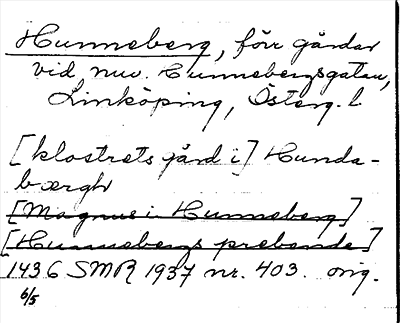 Hunneberg, förr gårdar
vid nuv. Hunnebergsgatan,
Linköping, Österg. l.
[klostrets gård i] Hunda-
bærgh
[Magnus i Hunneberg]
[Hunnebergs prebende]
1436 SMR 1937 nr. 403. orig.
6/5